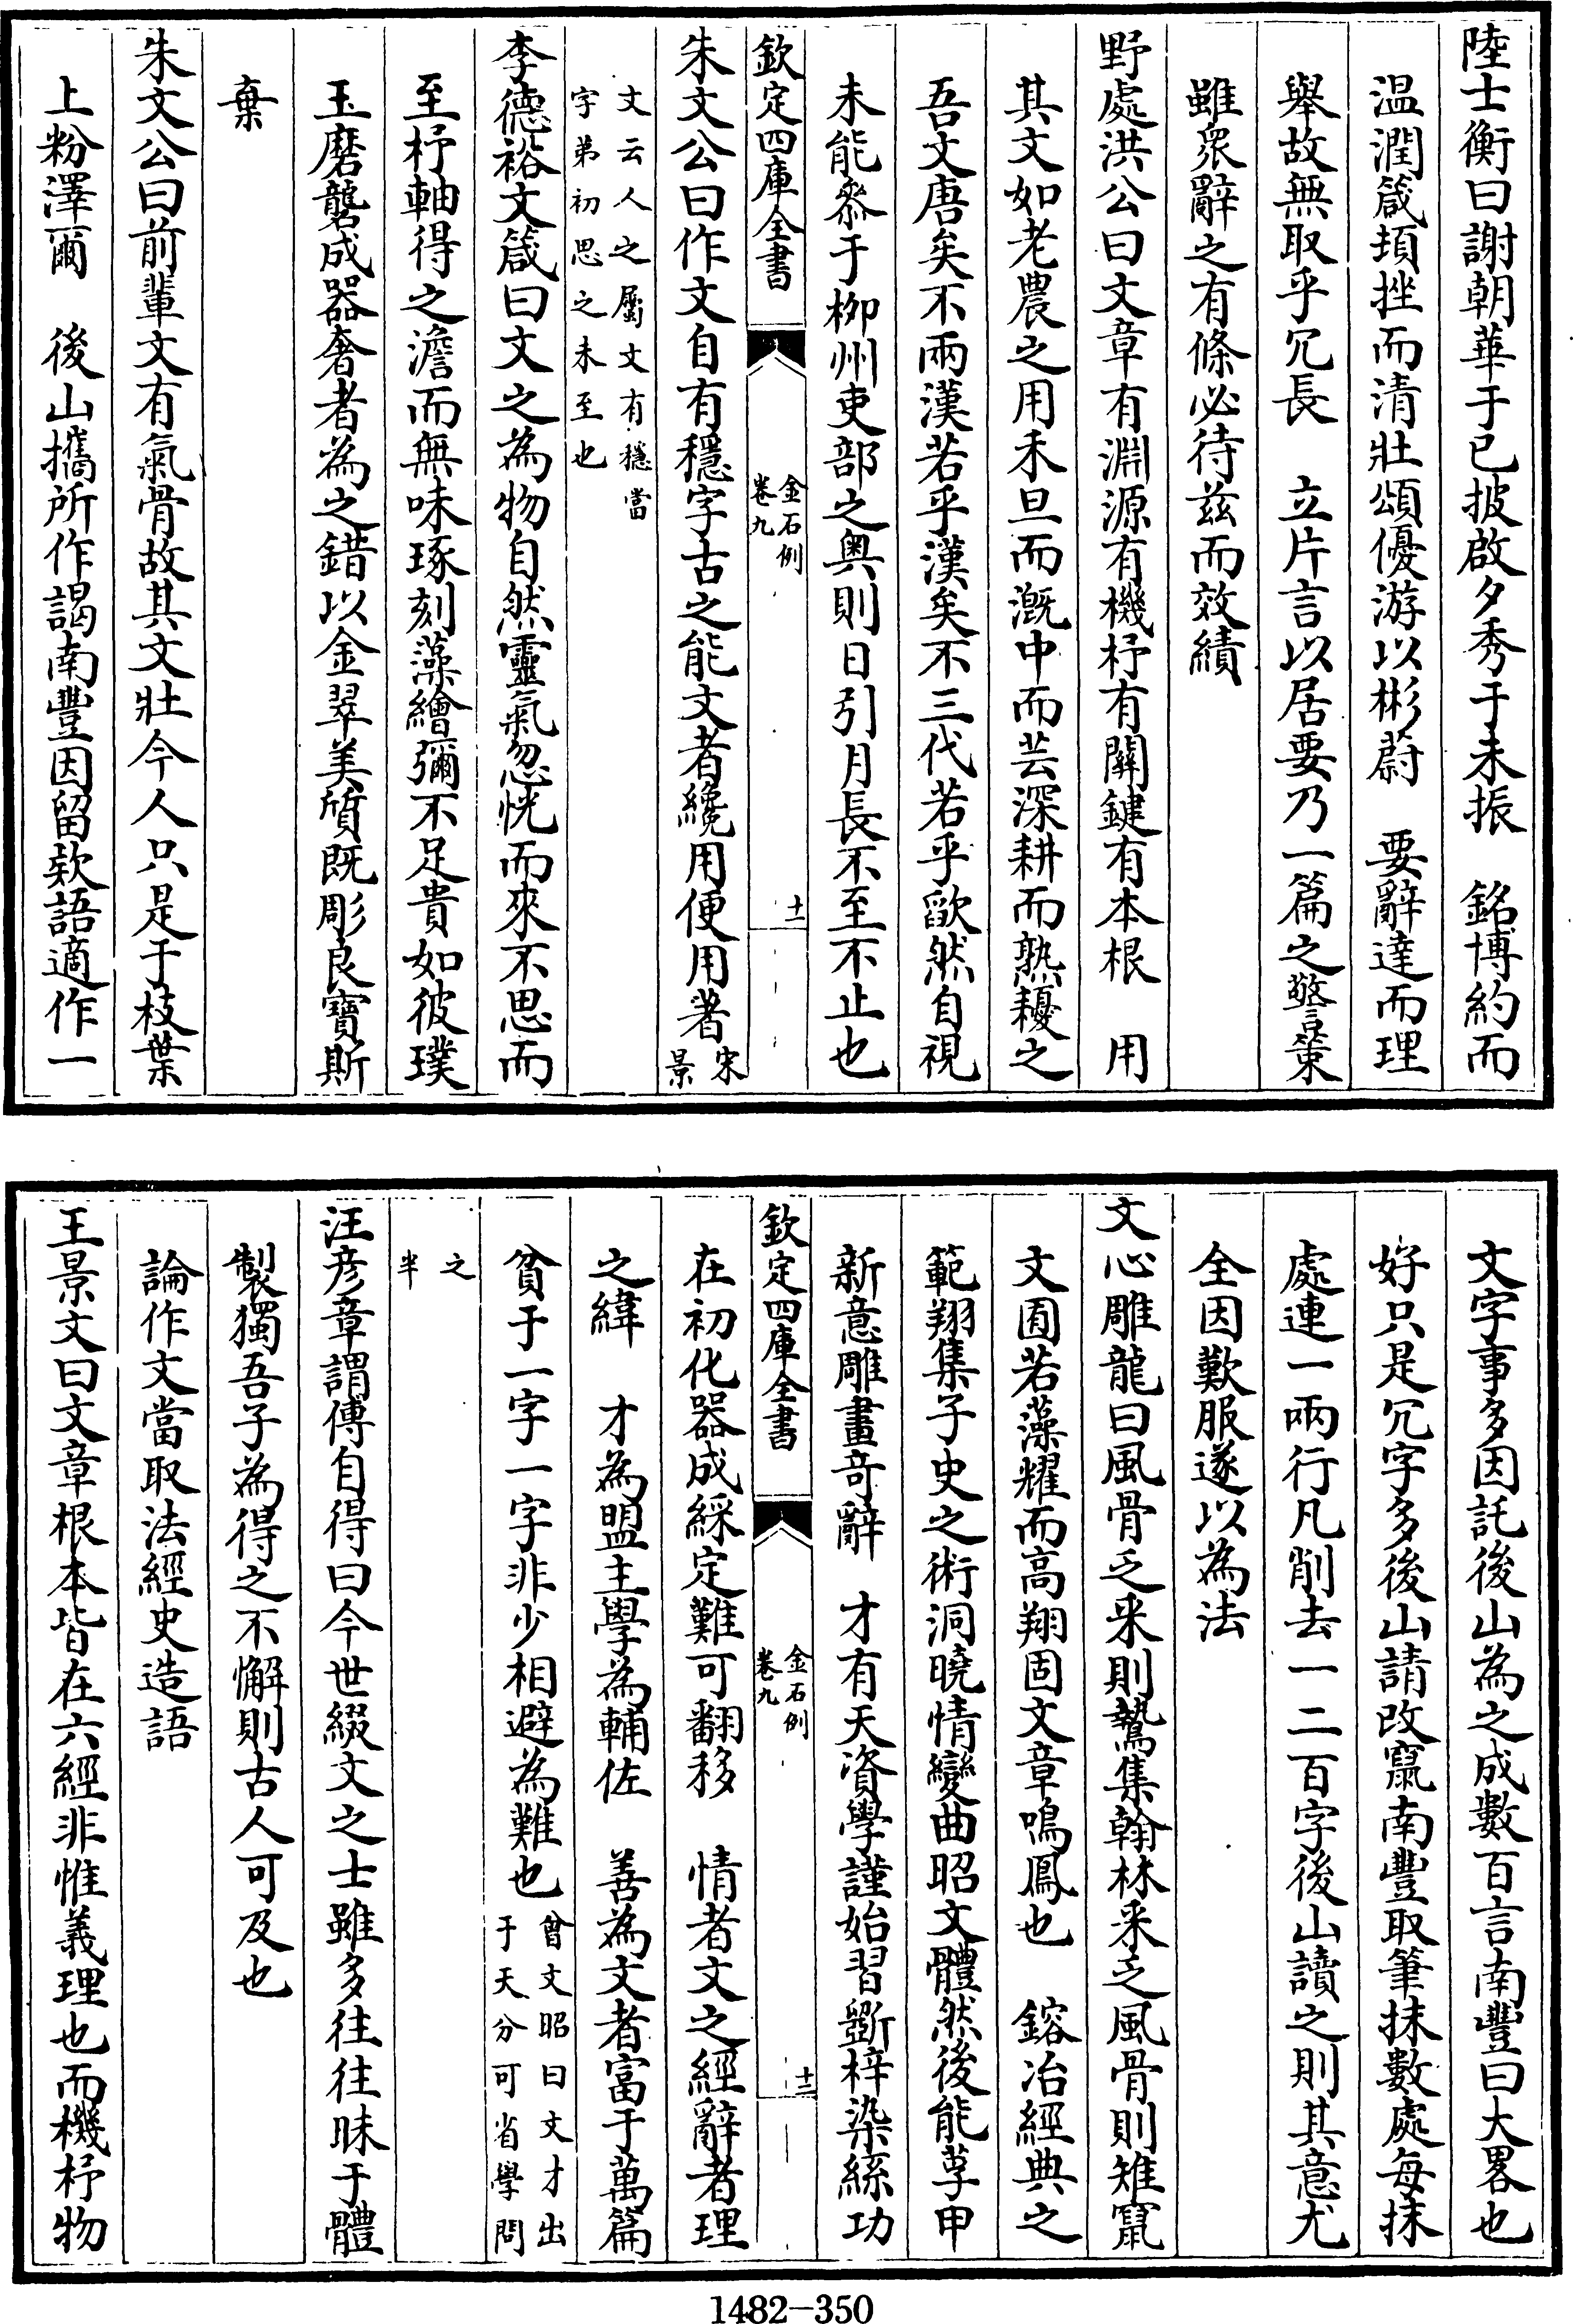 陸士衡曰謝朝華于已披啟夕秀于未振　銘博約而
温潤箴頓挫而清壯頌優游以彬蔚　要辭達而理
舉故無取乎冗長　立片言以居要乃一篇之警策
雖衆辭之有條必待兹而效績
野處洪公曰文章有淵源有機杼有關鍵有本根　用
其文如老農之用禾旦而溉中而芸深耕而熟耰之
吾文唐矣不兩漢若乎漢矣不三代若乎歛然自視
未能叅于栁州吏部之奥則日引月長不至不止也
欽定四庫全書
金石例
卷九
十一
朱文公曰作文自有穩字古之能文者纔用便用著宋景
文云人之屬文有穩當
字弟初思之未至也
李德裕文箴曰文之為物自然靈氣忽恍而來不思而
至杼軸得之澹而無味琢刻藻繪彌不足貴如彼璞
玉磨礱成器奢者為之錯以金翠美質既彫良寶斯
棄
朱文公曰前輩文有氣骨故其文壯今人只是于枝葉
上粉澤爾　後山攜所作謁南豐因留欵語適作一
文字事多因託後山為之成數百言南豐曰大畧也
好只是冗字多後山請改竄南豐取筆抹數處每抹
處連一兩行凡削去一二百字後山讀之則其意尤
全因歎服遂以為法
文心雕龍曰風骨乏采則鷙集翰林采乏風骨則雉竄
文囿若藻耀而高翔固文章鳴鳳也　鎔冶經典之
範翔集子史之術洞曉情變曲昭文體然後能莩甲
新意雕畫竒辭　才有天資學謹始習斵梓染絲功
欽定四庫全書
金石例
卷九
十二
在初化器成綵定難可翻移　情者文之經辭者理
之緯　才為盟主學為輔佐　善為文者富于萬篇
貧于一字一字非少相避為難也曾文昭曰文才出于天分可省學問
之
半
汪彦章謂傅自得曰今世綴文之士雖多往往昧于體
製獨吾子為得之不懈則古人可及也
論作文當取法經史造語
王景文曰文章根本皆在六經非惟義理也而機杼物
1482-350